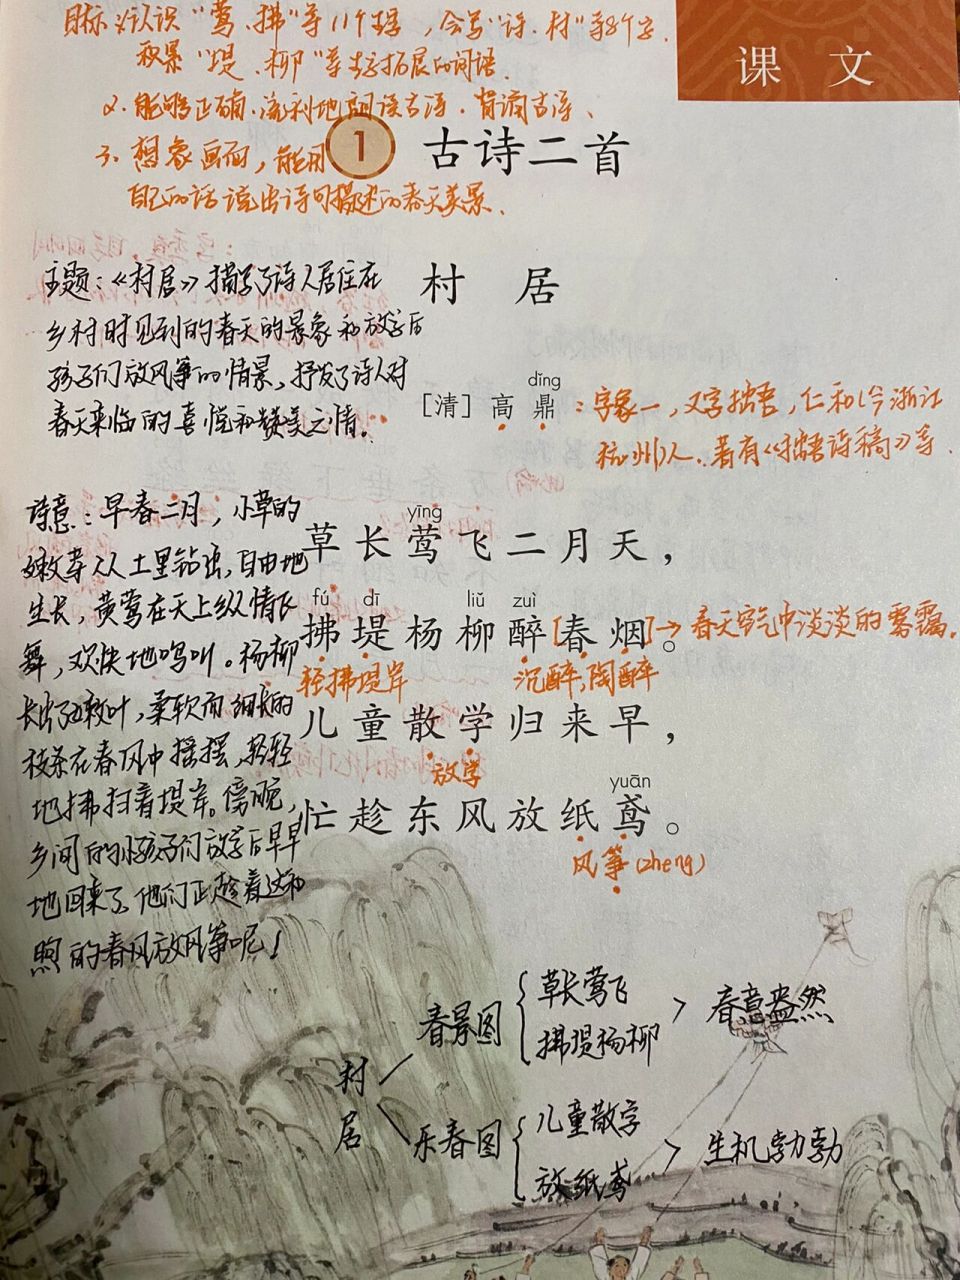 目标:1.认识"莺、拂"等11个生字,会写"诗、村"等8个字.
积累"堤、柳"等生字拓展的词语.
2.能够正确.流利地朗读古诗.背诵古诗、
3.想象画面,能用
自己的话说出诗句描述的春天美景、
课文
1 古诗二首
主题:《村居》描写了诗人居住在
乡村时见到的春天的景象和放学后
孩子们放风筝的情景,抒发了诗人对
春天来临的喜悦和赞美之情。
村居
dīng
[清]高鼎:字象一,又字拙吾,仁和(今浙江
杭州)人.著有《拙吾诗稿》等.
诗意:早春二月,小草的
嫩芽从土里钻出,自由地
生长,黄莺在天上纵情飞
舞,欢快地鸣叫。杨柳
长出了嫩叶,柔软而细长的
枝条在春风中摇摆,轻轻
地拂扫着堤岸。傍晚,
乡间的小孩子们放学后早早
地回来了,他们正趁着这和
煦的春风放风筝呢!
yīng
草长莺飞二月天,
fú dī liǔ zuì
拂堤杨柳醉[春烟]。→春天空气中淡淡的雾霭.
轻拂堤岸 沉醉,陶醉
儿童散学归来早,
放学
yuān
忙趁东风放纸鸢。
风筝(zheng)
村居
春景图
草长莺飞
拂堤杨柳
春意盎然
乐春图
儿童散学
放纸鸢
生机勃勃